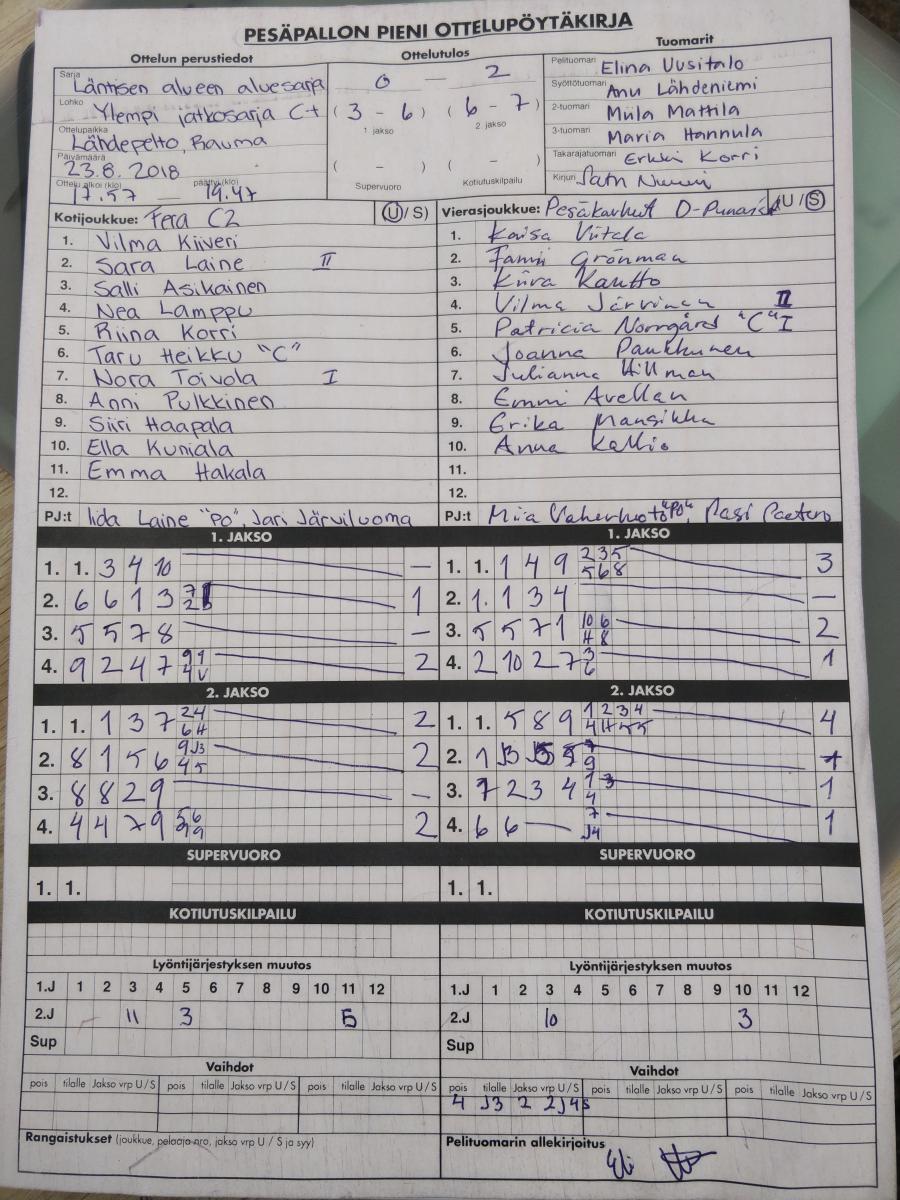 PESÄPALLON PIENI OTTELUPÖYTÄKIRJA
Ottelun perustiedot
Sarja Läntisen alueen aluesarja
Lohko Ylempi jatkosarja C+
Ottelupaikka Lähdepelto, Rauma
Päivämäärä 23.8.2018
Ottelu alkoi (klo) 17.57 — päättyi (klo) 19.47
Ottelutulos
0 — 2
(3 - 6) (6 - 7)
1. jakso 2. jakso
( - ) ( - )
Supervuoro Kotiutuskilpailu
Tuomarit
Pelituomari Elina Uusitalo
Syöttötuomari Anu Lähdeniemi
2-tuomari Miila Mattila
3-tuomari Maria Hannula
Takarajatuomari Erkki Korri
Kirjuri Satu Nurmi
Kotijoukkue: Fera C2 (U / S)
1. Vilma Kiiveri
2. Sara Laine II
3. Salli Asikainen
4. Nea Lamppu
5. Riina Korri
6. Taru Heikku "C"
7. Nora Toivola I
8. Anni Pulkkinen
9. Siiri Haapala
10. Ella Kuniala
11. Emma Hakala
12.
PJ:t Iida Laine "PO", Jari Järviluoma
Vierasjoukkue: Pesäkarhut D-Punaiset (U / S)
1. Kaisa Viitala
2. Fanni Grönman
3. Kiira Kautto
4. Vilma Järvinen II
5. Patricia Norrgård "C" I
6. Joanna Paukkunen
7. Julianna Hillman
8. Emmi Avellan
9. Erika Mansikka
10. Anna Kallio
11.
12.
PJ:t Mia "PO", Pasi
1. JAKSO
1. 1. 3 4 10 —
2. 6 6 1 3 7 2 1
3. 5 5 7 8 —
4. 9 2 4 7 9 1 4 V 2
1. JAKSO
1. 1. 1 4 9 2 3 5 5 6 8 3
2. 1. 1 3 4 —
3. 5 5 7 1 10 6 H 8 2
4. 2 10 2 7 3 6 1
2. JAKSO
1. 1. 1 3 7 2 4 6 H 2
2. 8 1 5 6 9 J3 4 5 2
3. 8 8 2 9 —
4. 4 4 7 9 5 6 9 2
2. JAKSO
1. 1. 5 8 9 1 2 3 4 4 H 5 5 4
2. 1 J3 7 9
3. 7 2 3 4 1 3 4 1
4. 6 6 — 7 J4 1
SUPERVUORO
1. 1.
SUPERVUORO
1. 1.
KOTIUTUSKILPAILU
KOTIUTUSKILPAILU
Lyöntijärjestyksen muutos
1.J 1 2 3 4 5 6 7 8 9 10 11 12
2.J 11 3 5
Sup
Lyöntijärjestyksen muutos
1.J 1 2 3 4 5 6 7 8 9 10 11 12
2.J 10 3
Sup
Vaihdot
pois tilalle Jakso vrp U / S pois tilalle Jakso vrp U / S pois tilalle Jakso vrp U / S
Vaihdot
pois tilalle Jakso vrp U / S pois tilalle Jakso vrp U / S pois tilalle Jakso vrp U / S
4 J3 2 2 J4 S
Rangaistukset (joukkue, pelaaja nro, jakso vrp U / S ja syy)
Pelituomarin allekirjoitus